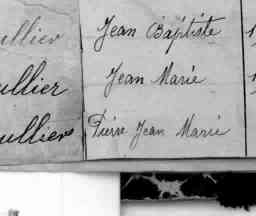 ullier Jean Baptiste
ullier Jean Marie
ullier Pierre Jean Marie